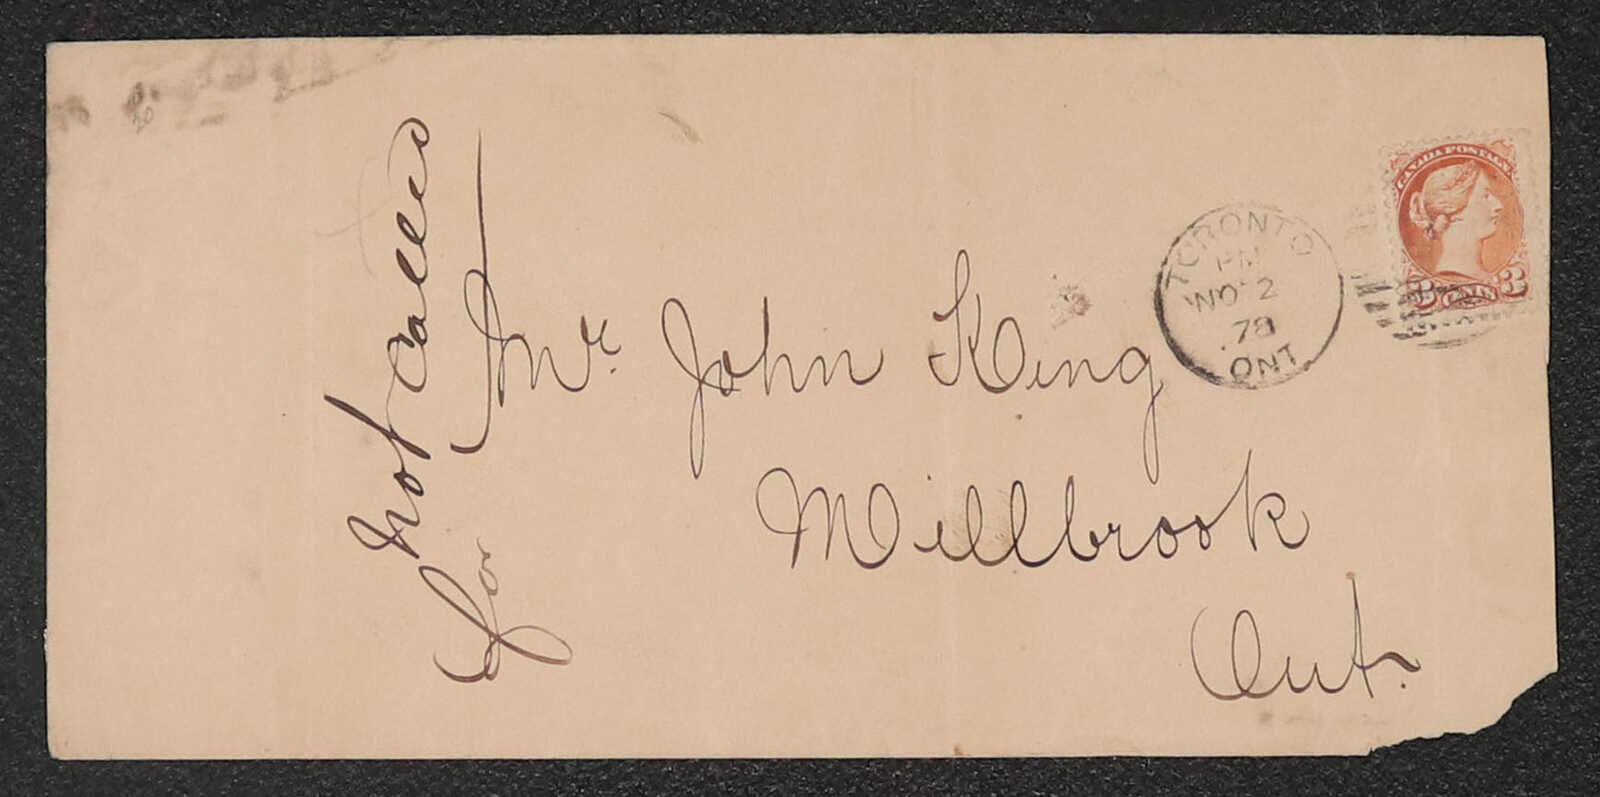 not called
for
Mr. John King
Millbrook
Ont.
TORONTO
PM
NO 2
78
ONT
CANADA POSTAGE
3 CENTS 3